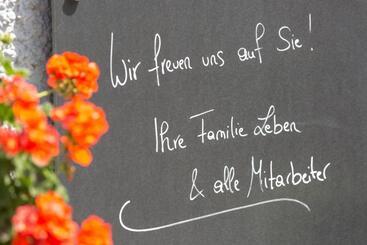 Wir freuen uns auf Sie!
Ihre Familie Leben
& alle Mitarbeiter